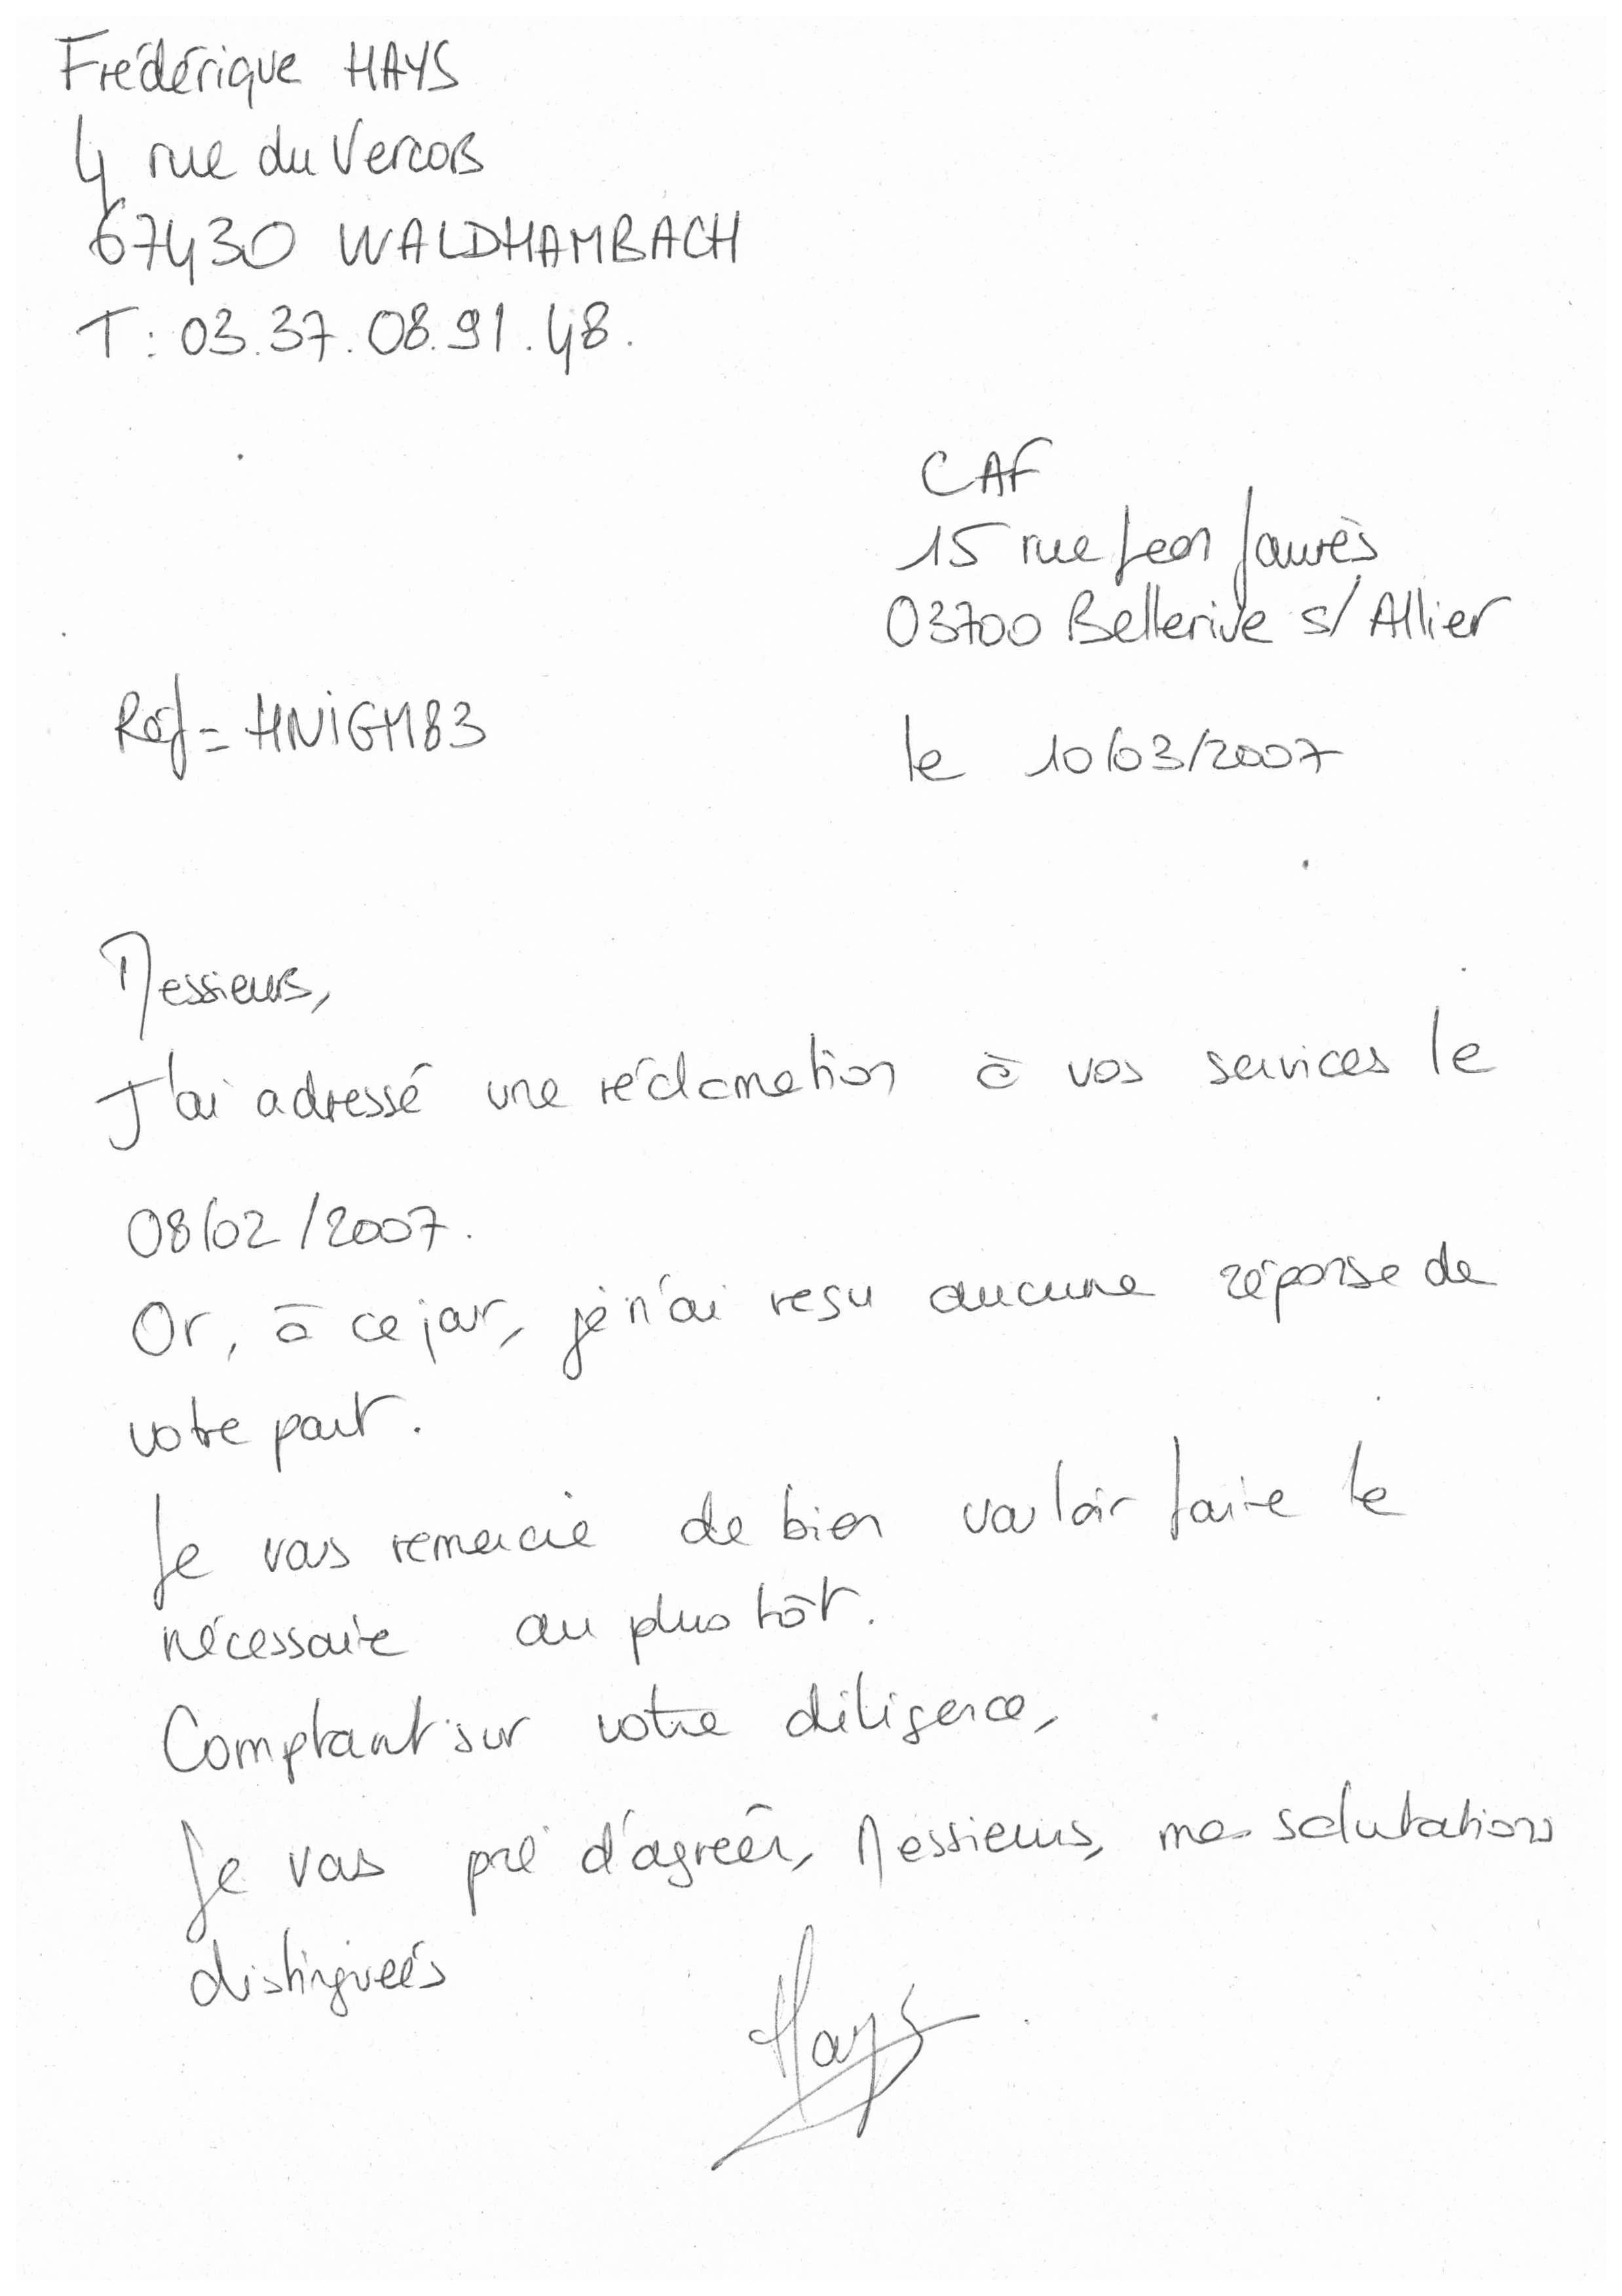 Frédérique HAYS
4 rue du Vercors
67430 WALDHAMBACH
T : 03.37.08.91.48.
CAF
15 rue Jean Jaurès
03700 Bellerive s/ Allier
Réf = HNIGM83
le 10/03/2007
Messieurs,
J'ai adressé une réclamation à vos services le
08/02/2007.
Or, à ce jour, je n'ai reçu aucune réponse de
votre part.
Je vous remercie de bien vouloir faire le
nécessaire au plus tôt.
Comptant sur votre diligence,
Je vous prie d'agréer, Messieurs, mes salutations
distinguées
Hays